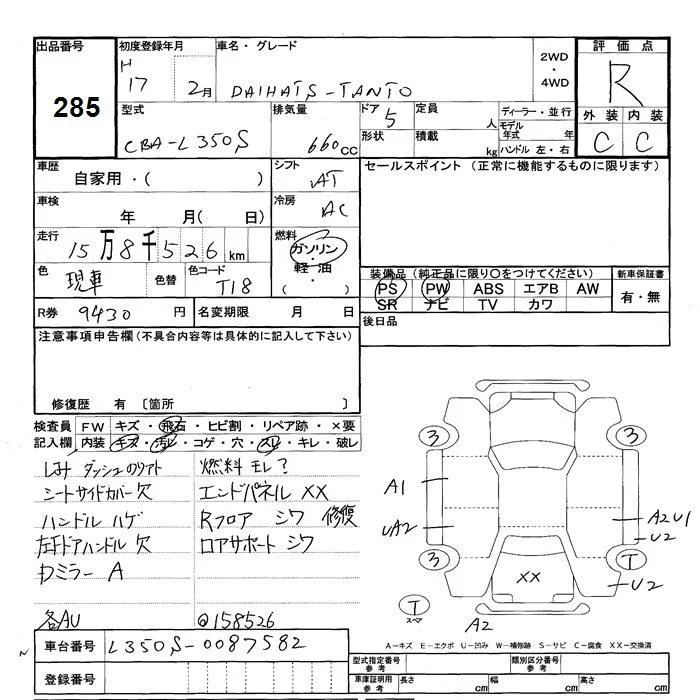 出品番号 初度登録年月 車名・グレード 2WD ・ 4WD 評価点
285
H 17 2月 DAIHATS-TANTO R
型式 排気量 ドア 定員 ディーラー・並行 外装 内装
CBA-L350S 660CC 5 人 モデル年式 年 C C
形状 積載 kg ハンドル 左・右
車歴 シフト セールスポイント (正常に機能するものに限ります)
自家用・( ) AT
車検 冷房
年 月( 日) AC
走行 燃料
15万8千526km ガソリン・軽油・( )
色 色替 色コード 装備品(純正品に限り○をつけてください) 新車保証書
現車 T18 PS PW ABS エアB AW 有・無
SR ナビ TV カワ
R券 9430円 名変期限 月 日 後日品
注意事項申告欄(不具合内容等は具体的に記入して下さい)
修復歴 有 〔箇所 〕
検査員 FW キズ・飛石・ヒビ割・リペア跡・×要
記入欄 内装 キズ・汚レ・コゲ・穴・スレ・キレ・破レ
燃料モレ?
シートサイドカバー欠 エンドパネル XX
ハンドルハゲ Rフロア シワ 修復
左手ドアハンドル欠 ロアサポートシワ
ミラー A
各AU @158526
3 3
A1
A2U1
UA2 U2
3 T
XX U2
T
スペア
A2
A-キズ E-エクボ U-凹み W-補修跡 S-サビ C-腐食 XX-交換済
車台番号 L350S-0087582
登録番号
型式指定番号 参考 類別区分番号 参考
車庫証明用 参考 長さ cm 幅 cm 高さ cm